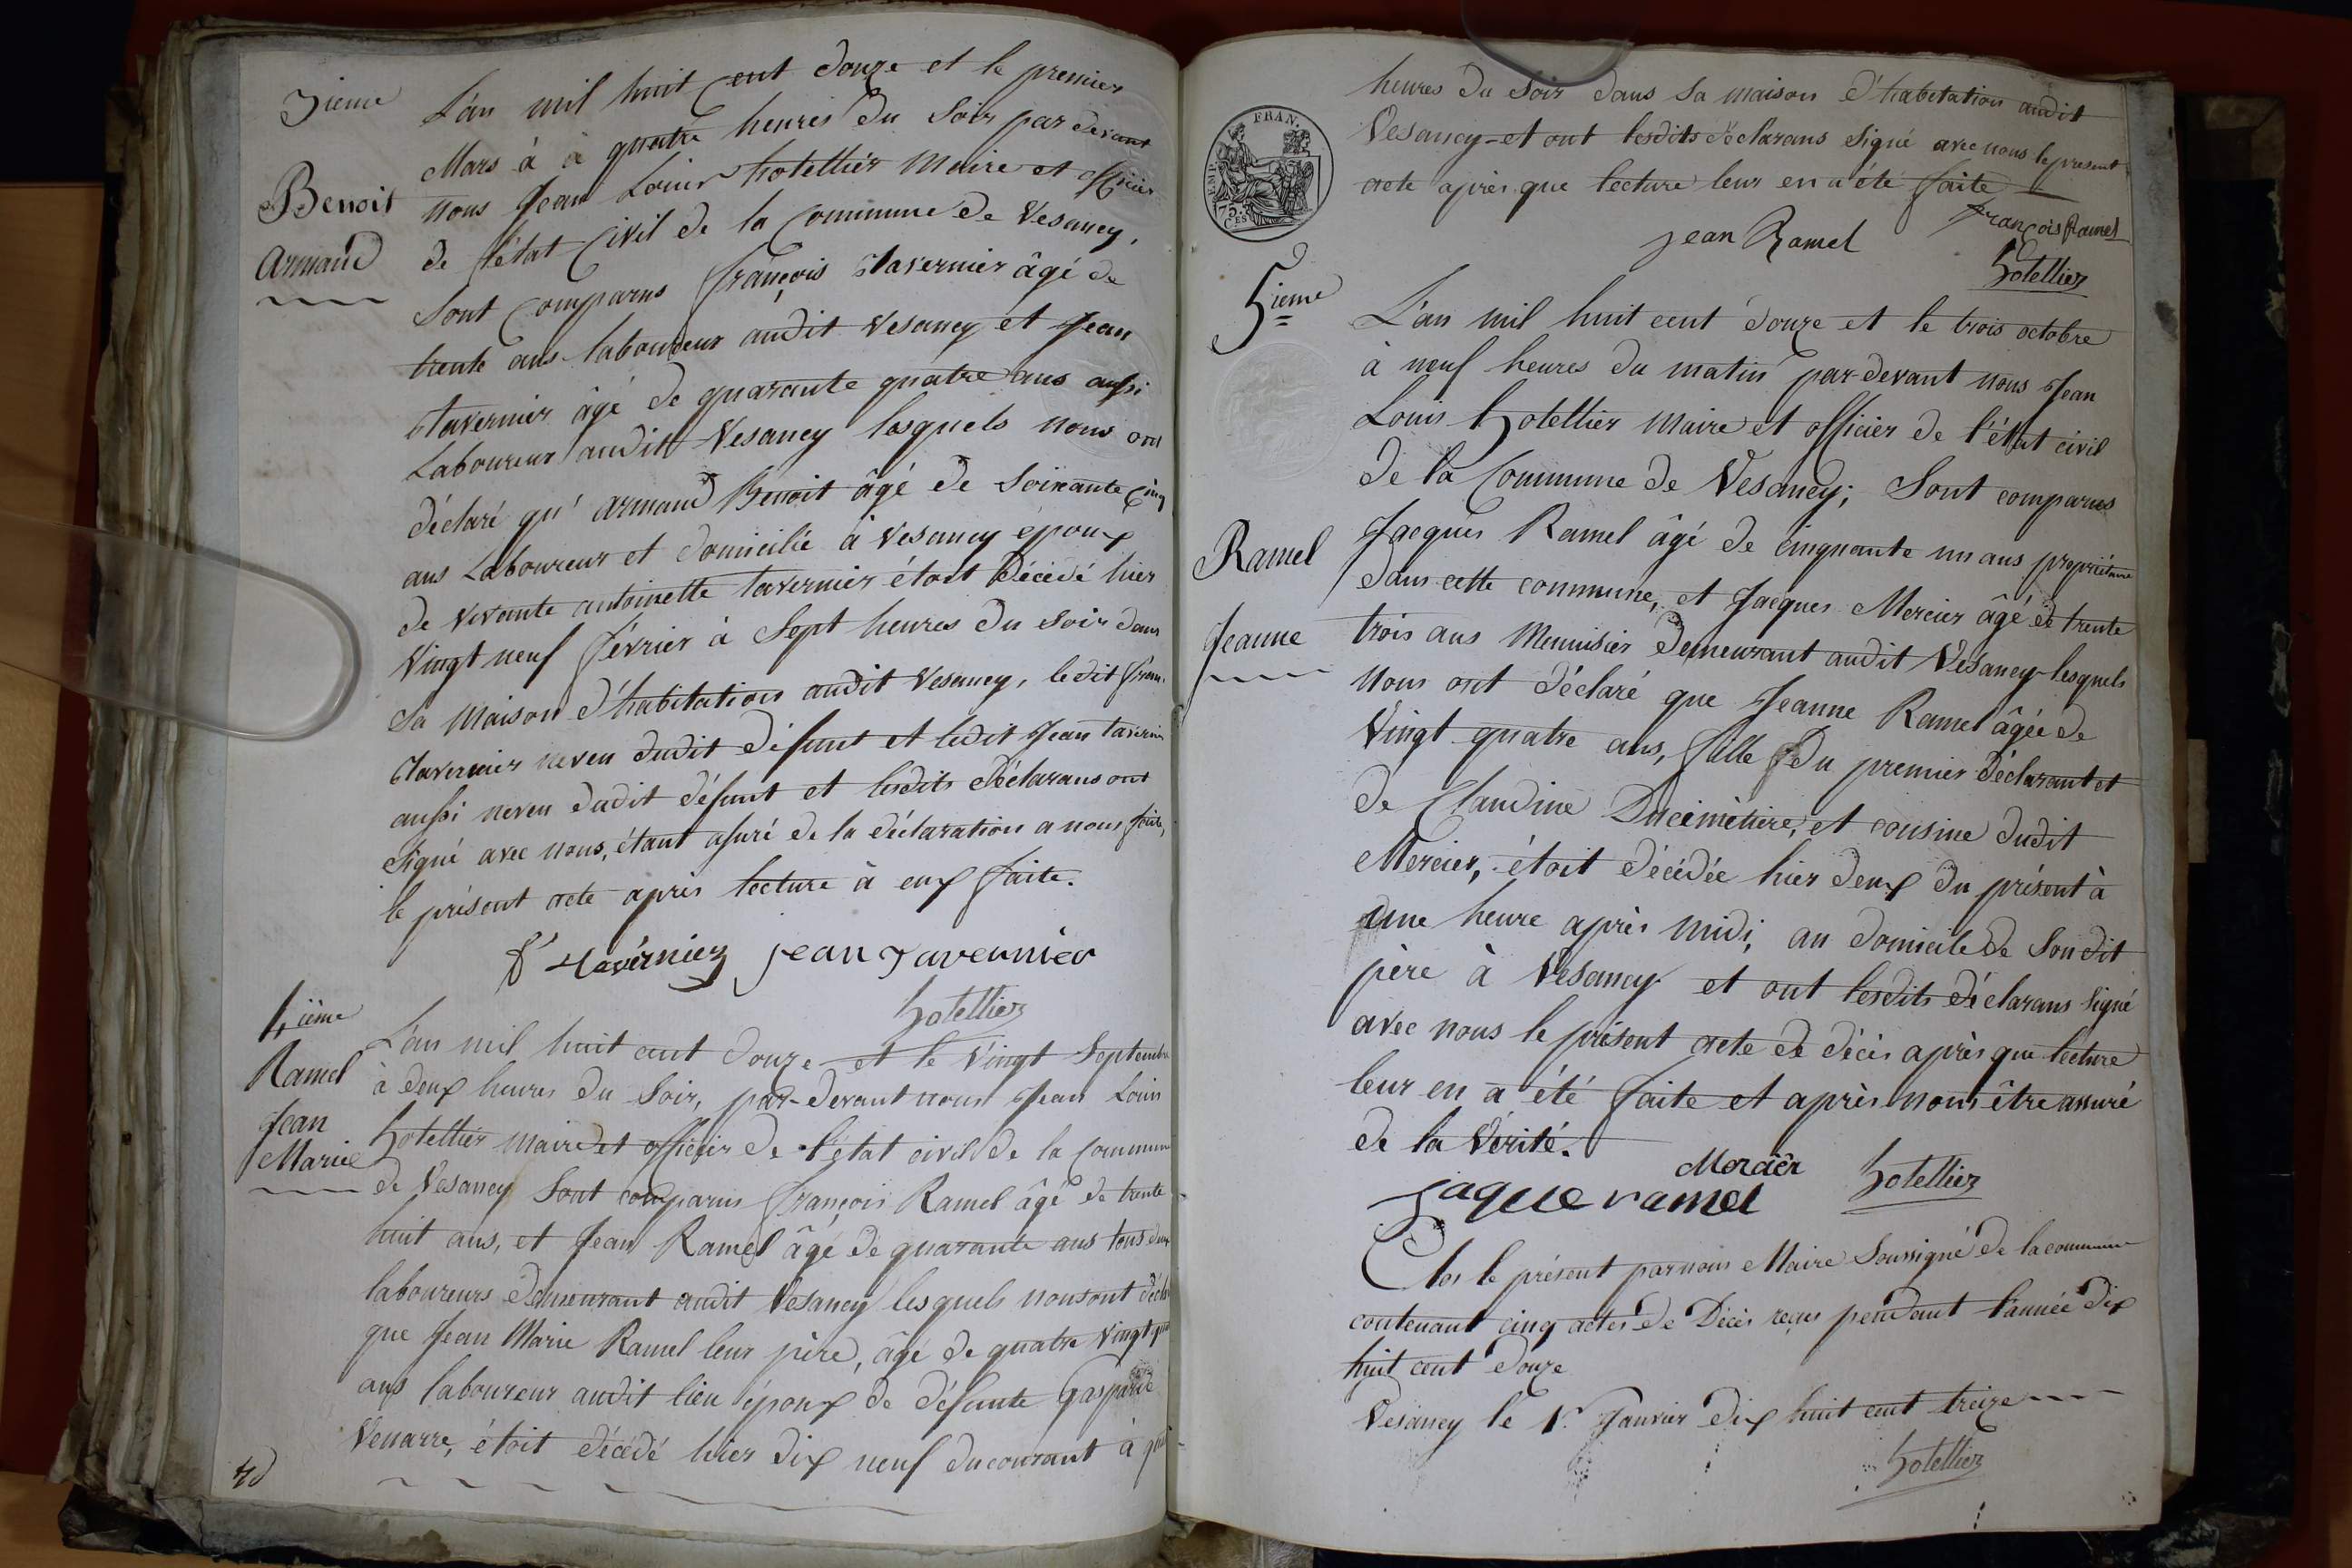 3ieme
Benoit
Armand
L'an mil huit cent douze et le premier
Mars à à quatre heures du soir par devant
nous Jean Louis hotellier Maire et officier
de l'état civil de la Commune de Vesancy,
Sont Comparus françois Tavernier âgé de
trente ans laboureur audit Vesancy et Jean
Tavernier âgé de quarante quatre ans aussi
Laboureur audit Vesancy lesquels nous ont
déclaré qu' Armand Benoit âgé de soixante cinq
ans Laboureur et domicilié à Vesancy époux
de vivante antoinette tavernier étoit décédé hier
vingt neuf février à sept heures du soir dans
sa maison d'habitation audit Vesancy, ledit fran.
Tavernier neveu dudit défunt et ledit Jean tavernier
aussi neveu dudit défunt et lesdits déclarans ont
signé avec nous, étant assuré de la déclaration a nous faite,
le présent acte après lecture à eux faite.
f Tavernier jean Tavernier
hotellier
4ieme
Ramel
Jean
Marie
L'an mil huit cent douze et le vingt Septembre
à deux heures du soir, par-devant nous Jean Louis
hotellier maire et officier de l'état civil de la Commune
de Vesancy Sont comparus françois Ramel âgé de trente
huit ans, et Jean Ramel âgé de quarante ans tous deux
laboureurs demeurant audit Vesancy lesquels nous ont décla
que Jean Marie Ramel leur père, âgé de quatre vingt
ans laboureur audit lieu époux de défunte Gasparde
Venarre, étoit décédé hier dix neuf du courant à
heures du soir dans sa maison d'habitation audit
Vesancy et ont lesdits déclarans signé avec nous le present
acte après que lecture leur en a été faite
jean Ramel
françois Ramel
hotellier
FRAN.
EMP.
75.
CES
5ieme
Ramel
Jeanne
L'an mil huit cent douze et le trois octobre
à neuf heures du matin par-devant nous Jean
Louis hotellier Maire et officier de l'état civil
de la Commune de Vesancy; Sont comparus
Jacques Ramel âgé de cinquante un ans propriétaire
dans cette commune, et Jacques Mercier âgé de trente
trois ans Menuisier demeurant audit Vesancy lesquels
nous ont déclaré que Jeanne Ramel âgée de
vingt quatre ans, fille du premier déclarant et
de Claudine Ducimetière, et cousine dudit
Mercier, étoit décédée hier deux du présent à
une heure après midi, au domicile de Son dit
père à Vesancy et ont lesdits déclarans signé
avec nous le présent acte de décès après que lecture
leur en a été faite et après nous être assuré
de la vérité.
Mercier
jaque ramel
hotellier
Clos le présent par nous Maire Soussigné de la commune
contenant cinq actes de Décès reçus pendant l'année dix
huit cent douze
Vesancy le 1r. Janvier dix huit cent treize
hotellier